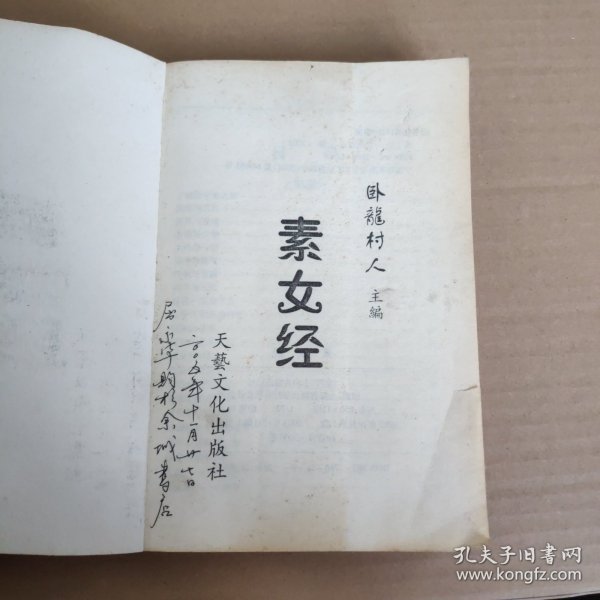 卧龍村人 主编
素女经
天藝文化出版社
二〇〇五年十一月廿七日
购於余城書店
孔夫子旧书网
www.kongfz.com